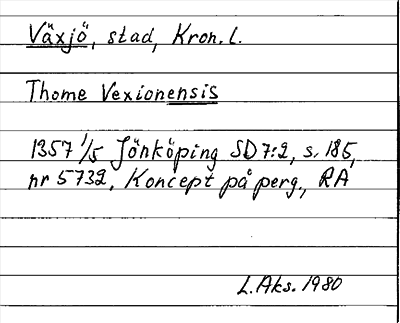 Växjö, stad, Kron. l.
Thome Vexionensis
1357 1/5 Jönköping SD 7:2, s. 185,
nr 5732, Koncept på perg., RA
L. Aks. 1980